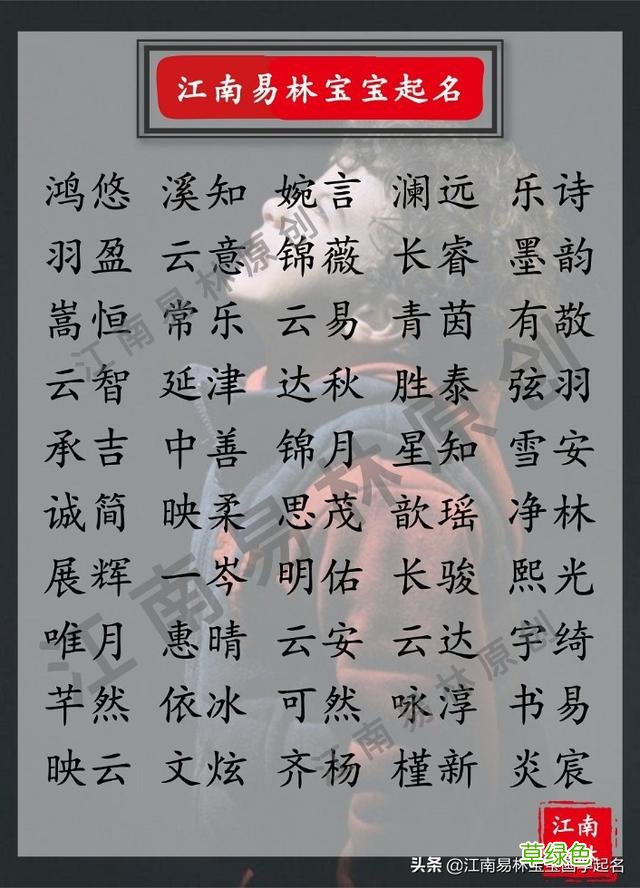 江南易林宝宝起名
鸿悠 溪知 婉言 澜远 乐诗
羽盈 云意 锦薇 长睿 墨韵
嵩恒 常乐 云易 青茵 有敬
云智 延津 达秋 胜泰 弦羽
承吉 中善 锦月 星知 雪安
诚简 映柔 思茂 歆瑶 净林
展辉 一岑 明佑 长骏 熙光
唯月 惠晴 云安 云达 宇绮
芊然 依冰 可然 咏淳 书易
映云 文炫 齐杨 槿新 炎宸
江南易林原创
江南易林原创
江南易林原创
江南
草绿色
头条 @江南易林宝宝国学起名